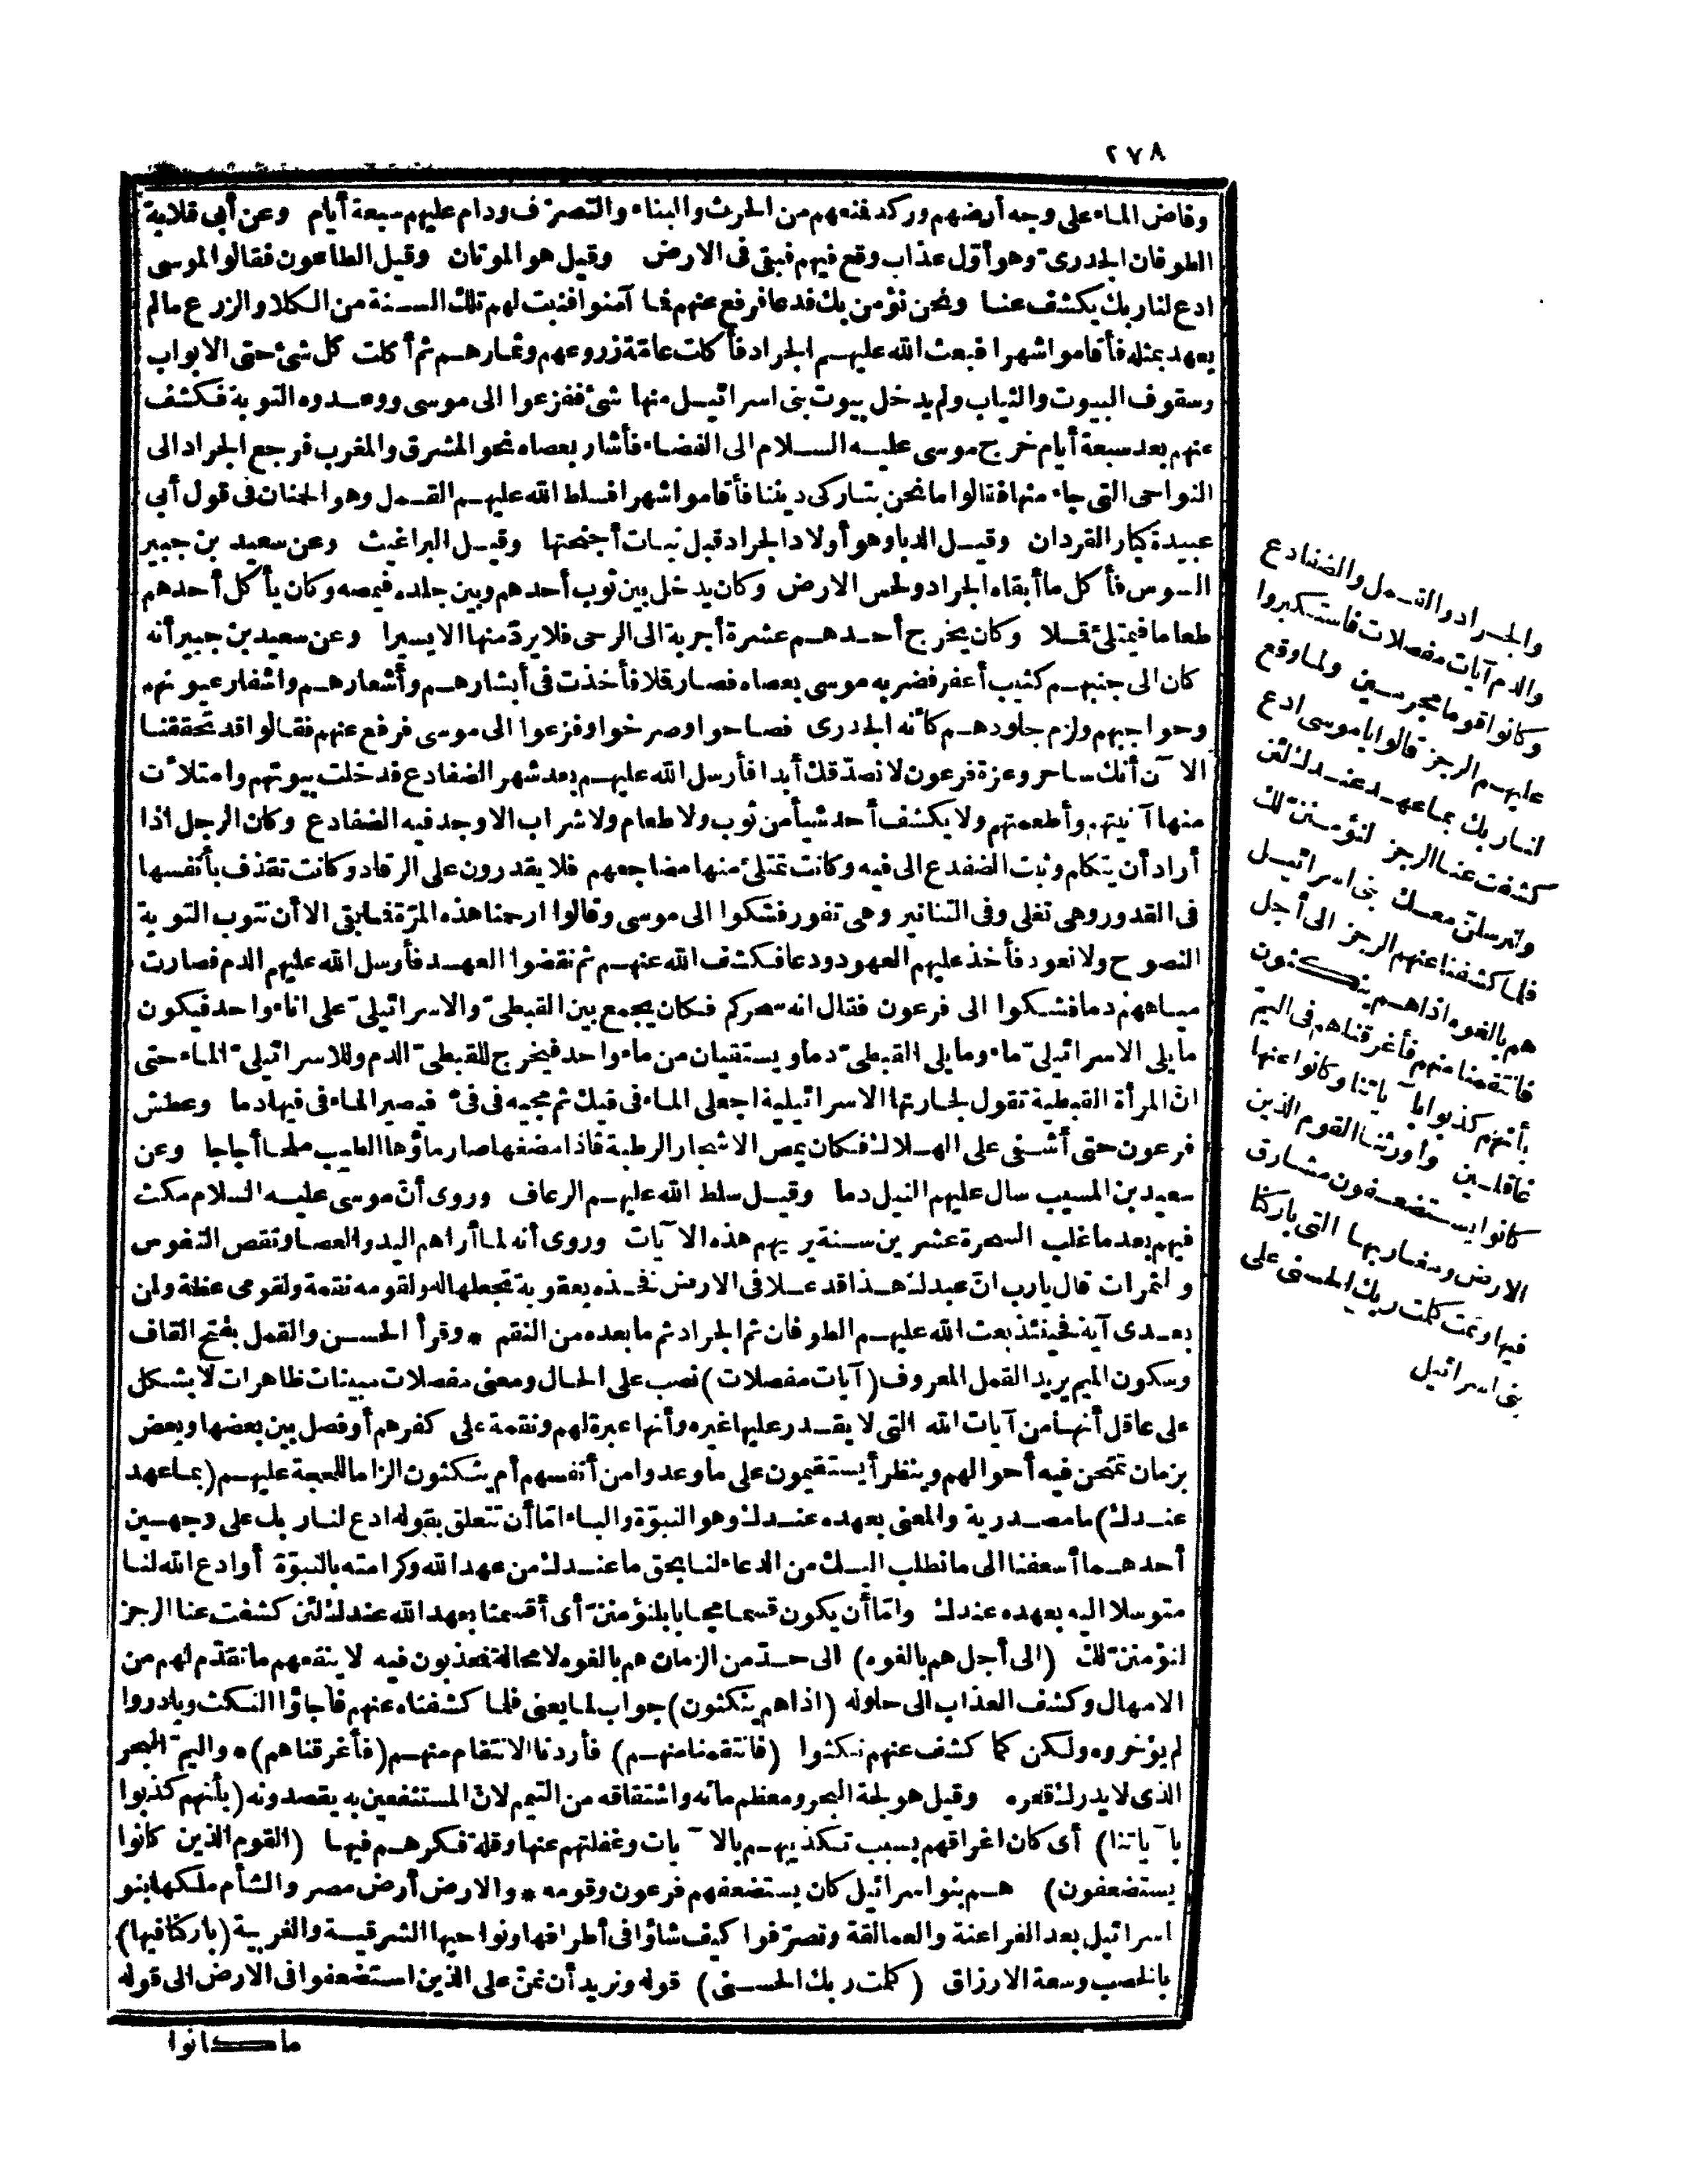 ٢٧٨
وفاض الماء على وجه أرضهم وركد فمنعهم من الحرث والبناء والتصرّف ودام عليهم سبعة أيام وعن أبى قلابة
الطوفان الجدرىّ وهو أوّل عذاب وقع فيهم فبقى فى الارض وقيل هو الموتان وقيل الطاعون فقالوا لموسى
ادع لنا ربك يكشف عنا ونحن نؤمن بك فدعا فرفع عنهم فما آمنوا فنبت لهم تلك السنة من الكلا والزرع مالم
يعهد بمثله فأقاموا شهرا فبعث الله عليهم الجراد فأكلت عامّة زروعهم وثمارهم ثم أكلت كل شئ حتى الابواب
وسقوف البيوت والثياب ولم يدخل بيوت بنى اسرائيل منها شئ ففزعوا الى موسى ووعدوه التوبة فكشف
عنهم بعد سبعة أيام خرج موسى عليه السلام الى الفضاء فأشار بعصاه نحو المشرق والمغرب فرجع الجراد الى
النواحى التى جاء منها فقالوا ما نحن بتاركى ديننا فأقاموا شهرا فسلط الله عليهم القمل وهو الحمنان فى قول أبى
عبيدة كبار القردان وقيل الدبا وهو أولاد الجراد قبل نبات أجنحتها وقيل البراغيث وعن سعيد بن جبير
السوس فأكل ما أبقاه الجراد ولحس الارض وكان يدخل بين ثوب أحدهم وبين جلده فيمصه وكان يأكل أحدهم
طعاما فيمتلئ قملا وكان يخرج أحدهم عشرة أجربة الى الرحى فلا يردّ منها الا يسيرا وعن سعيد بن جبير أنه
كان الى جنبهم كثيب أعفر فضربه موسى بعصاه فصار قملا فأخذت فى أبشارهم وأشعارهم واشفار عيونهم
وحواجبهم ولزم جلودهم كأنه الجدرى فصاحوا وصرخوا وفزعوا الى موسى فرفع عنهم فقالوا قد تحققنا
الآن أنك ساحر وعزة فرعون لا نصدّقك أبدا فأرسل الله عليهم بعد شهر الضفادع فدخلت بيوتهم وامتلأت
منها آنيتهم وأطعمتهم ولا يكشف أحد شيأ من ثوب ولا طعام ولا شراب الا وجد فيه الضفادع وكان الرجل اذا
أراد أن يتكلم وثبت الضفدع الى فيه وكانت تمتلئ منها مضاجعهم فلا يقدرون على الرقاد وكانت تقذف بأنفسها
فى القدور وهى تغلى وفى التنانير وهى تفور فشكوا الى موسى وقالوا ارحمنا هذه المرّة فما بقى الا أن نتوب التوبة
النصوح ولا نعود فأخذ عليهم العهود ودعا فكشف الله عنهم ثم نقضوا العهد فأرسل الله عليهم الدم فصارت
مياههم دما فشكوا الى فرعون فقال انه سحركم فكان يجمع بين القبطىّ والاسرائيلىّ على اناء واحد فيكون
ما يلى الاسرائيلىّ ماء وما يلى القبطىّ دما ويستقيان من ماء واحد فيخرج للقبطىّ الدم وللاسرائيلىّ الماء حتى
انّ المرأة القبطية تقول لجارتها الاسرائيلية اجعلى الماء فى فيك ثم مجيه فى فىّ فيصير الماء فى فيها دما وعطش
فرعون حتى أشفى على الهلاك فكان يمص الاشجار الرطبة فاذا مضغها صار ماؤها الطيب ملحا أجاجا وعن
سعيد بن المسيب سال عليهم النيل دما وقيل سلط الله عليهم الرعاف وروى أنّ موسى عليه السلام مكث
فيهم بعد ما غلب السحرة عشرين سنة يريهم هذه الآيات وروى أنه لما أراهم اليد والعصا ونقص النفوس
والثمرات قال يارب انّ عبدك هذا قد علا فى الارض فخذه بعقوبة تجعلها له ولقومه نقمة ولقومى عظة ولمن
بعدى آية فحينئذ بعث الله عليهم الطوفان ثم الجراد ثم ما بعده من النقم * وقرأ الحسن والقمل بفتح القاف
وسكون الميم يريد القمل المعروف (آيات مفصلات) نصب على الحال ومعنى مفصلات مبينات ظاهرات لا يشكل
على عاقل أنها من آيات الله التى لا يقدر عليها غيره وأنها عبرة لهم ونقمة على كفرهم أو فصل بين بعضها وبعض
بزمان تمتحن فيه أحوالهم وينظر أيستقيمون على ما وعدوا من أنفسهم أم ينكثون الزاما للحجة عليهم (بما عهد
عندك) ما مصدرية والمعنى بعهده عندك وهو النبوّة والباء امّا أن تتعلق بقوله ادع لنا ربك على وجهين
أحدهما أسعفنا الى ما نطلب اليك من الدعاء لنا بحق ما عندك من عهد الله وكرامته بالنبوّة أو ادع الله لنا
متوسلا اليه بعهده عندك وامّا أن يكون قسما مجابا بلنؤمننّ أى أقسمنا بعهد الله عندك لئن كشفت عنا الرجز
لنؤمننّ لك (الى أجل هم بالغوه) الى حدّ من الزمان هم بالغوه لا محالة فمعذبون فيه لا ينفعهم ما تقدّم لهم من
الامهال وكشف العذاب الى حلوله (اذا هم ينكثون) جواب لما يعنى فلما كشفناه عنهم فاجاؤا النكث وبادروا
لم يؤخروه ولكن كما كشف عنهم نكثوا (فانتقمنا منهم) فأردنا الانتقام منهم (فأغرقناهم) * واليمّ البحر
الذى لا يدرك قعره وقيل هو لجة البحر ومعظم مائه واشتقاقه من التيمم لانّ المستنفعين به يقصدونه (بأنهم كذبوا
بآياتنا) أى كان اغراقهم بسبب تكذيبهم بالآيات وغفلتهم عنها وقلة فكرهم فيها (القوم الذين كانوا
يستضعفون) هم بنو اسرائيل كان يستضعفهم فرعون وقومه * والارض أرض مصر والشأم ملكها بنو
اسرائيل بعد الفراعنة والعمالقة وتصرّفوا كيف شاؤا فى أطرافها ونواحيها الشرقية والغربية (باركنا فيها)
بالخصب وسعة الارزاق (كلمت ربك الحسنى) قوله ونريد أن نمنّ على الذين استضعفوا فى الارض الى قوله
ما كانوا
والجراد والقمل والضفادع
والدم آيات مفصلات فاستكبروا
وكانوا قوما مجرمين ولما وقع
عليهم الرجز قالوا يا موسى ادع
لنا ربك بما عهد عندك لئن
كشفت عنا الرجز لنؤمننّ لك
ولنرسلنّ معك بنى اسرائيل
فلما كشفنا عنهم الرجز الى أجل
هم بالغوه اذا هم ينكثون
فانتقمنا منهم فأغرقناهم فى اليمّ
بأنهم كذبوا بآياتنا وكانوا عنها
غافلين وأورثنا القوم الذين
كانوا يستضعفون مشارق
الارض ومغاربها التى باركنا
فيها وتمت كلمت ربك الحسنى على
بنى اسرائيل